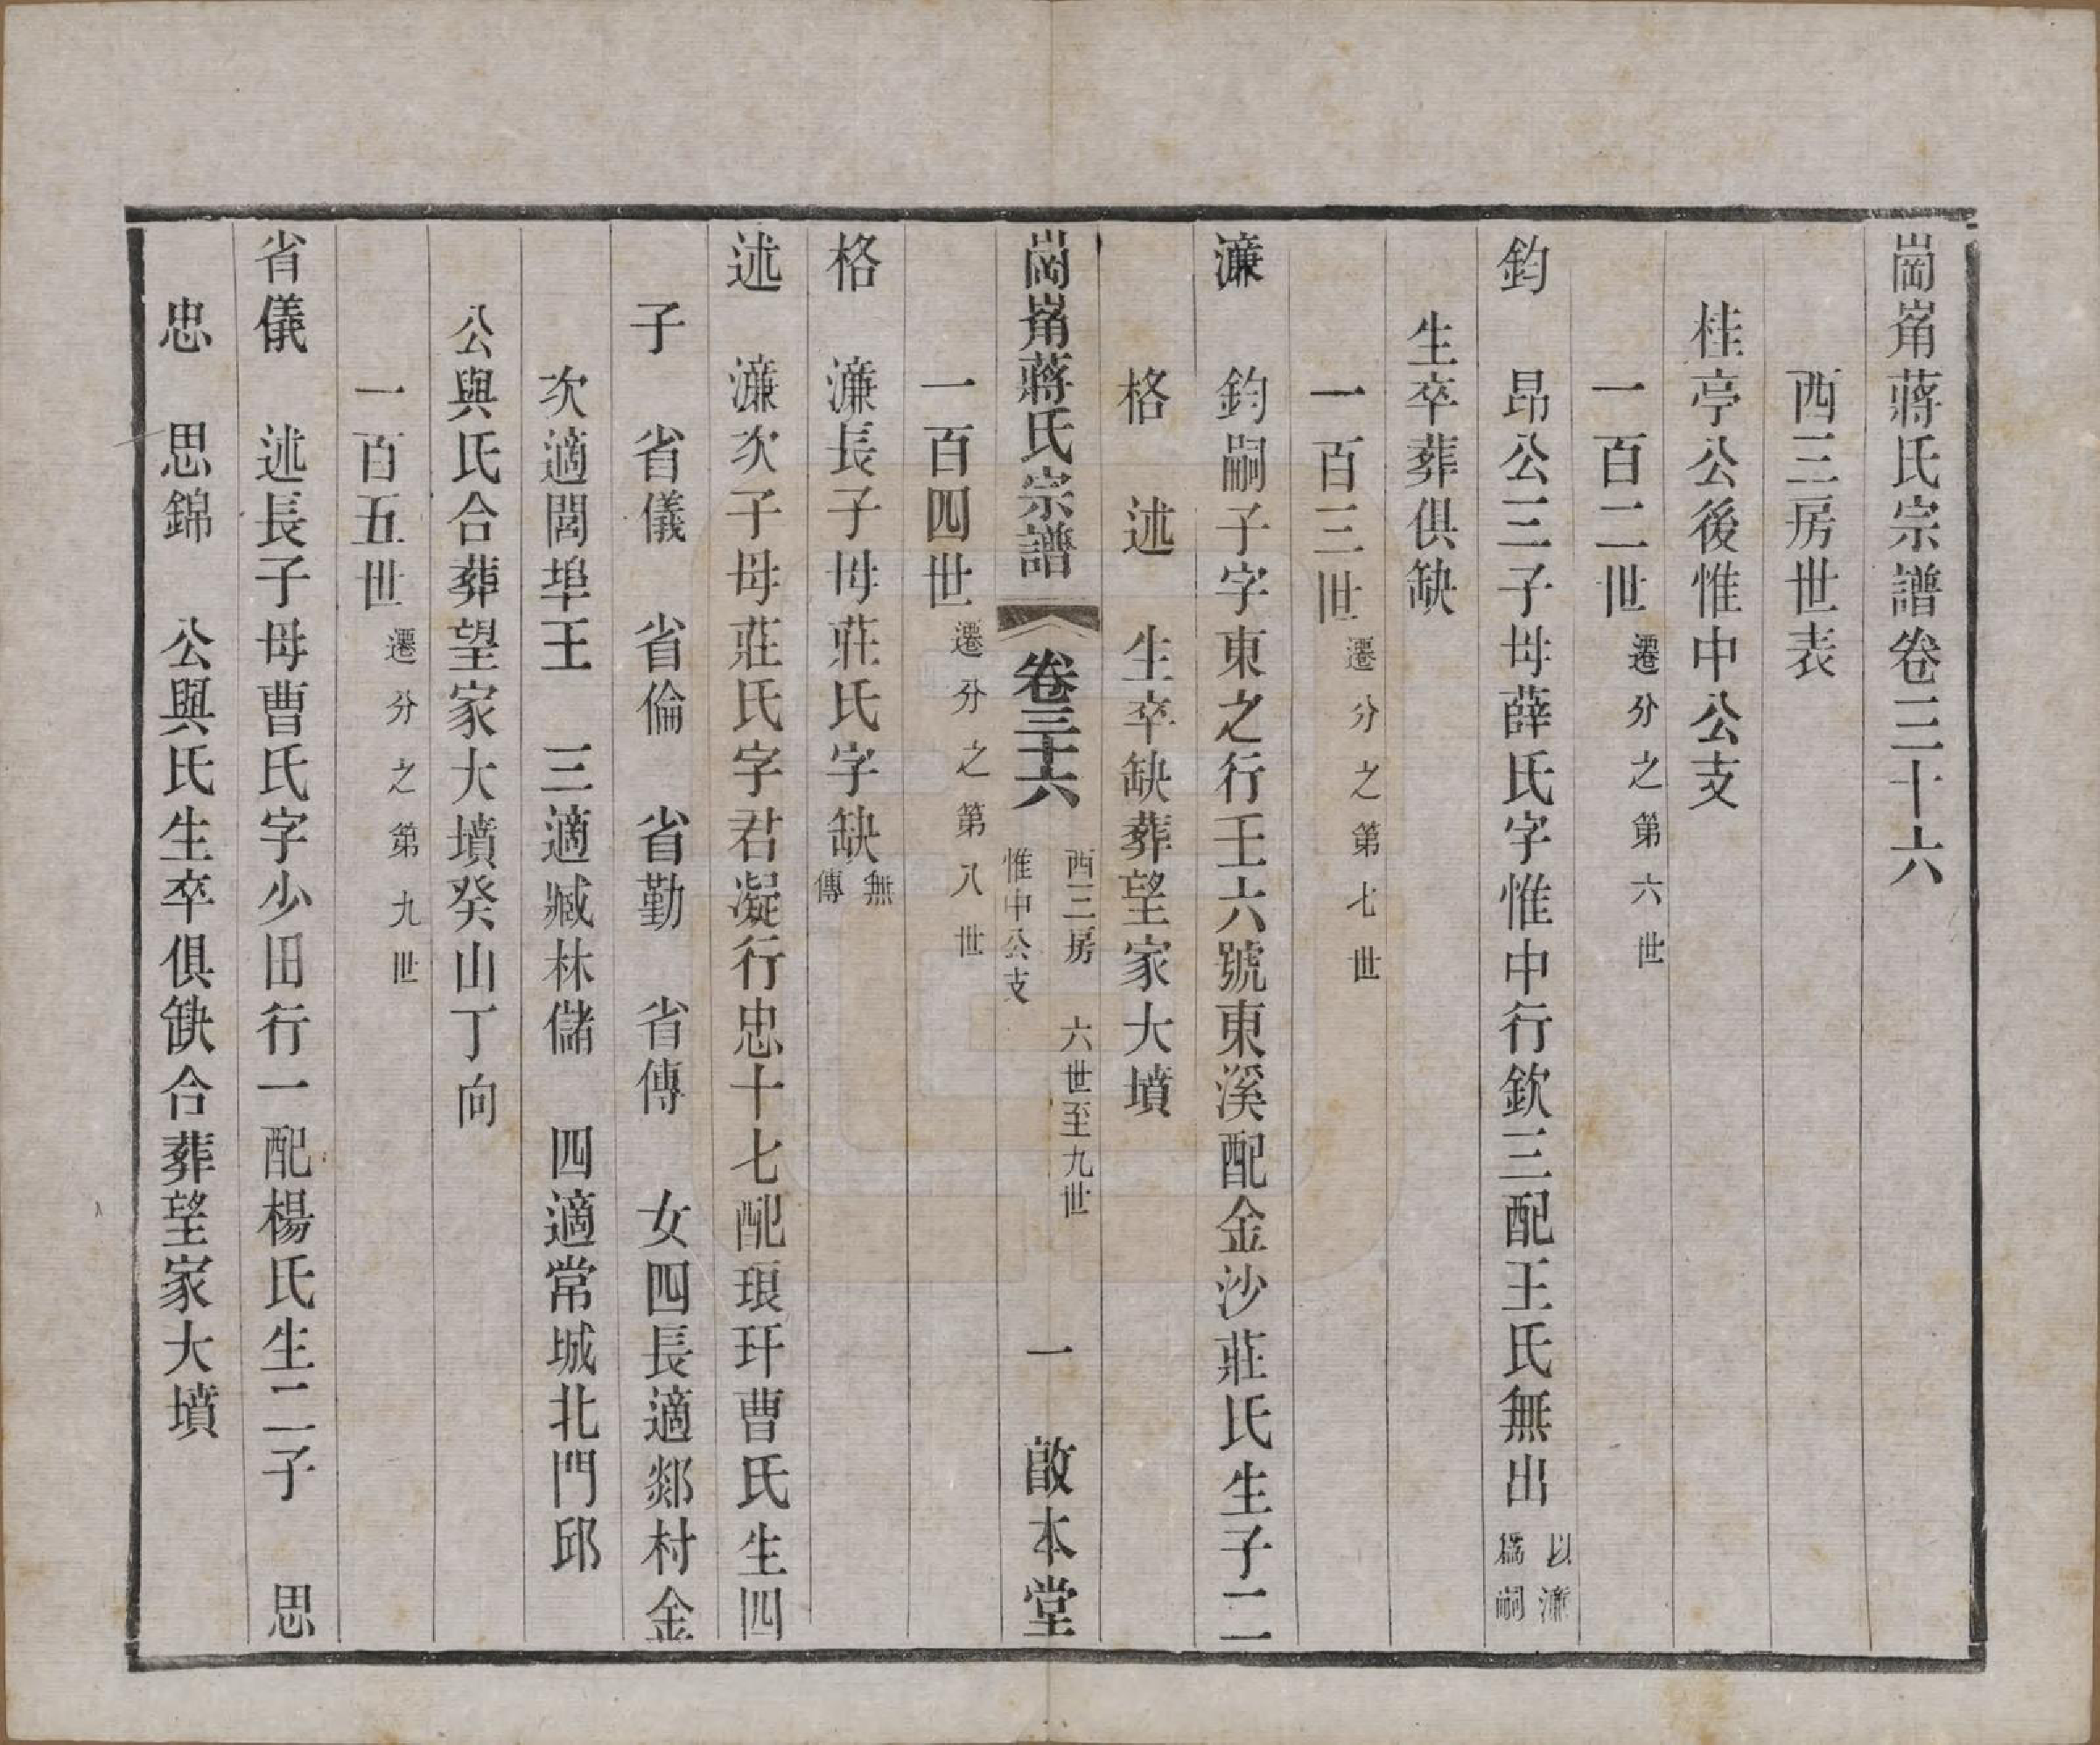 崗崩蔣氏宗譜卷三十六
西三房世表
桂亭公後惟中公支
一百二世 遷分之第六世
鈞 昂公三子母薛氏字惟中行欽三配王氏無出 以濂為嗣
生卒葬俱缺
一百三世 遷分之第七世
濂 鈞嗣子字東之行壬六號東溪配金沙莊氏生子二
格 述 生卒缺葬望家大墳
崗崩蔣氏宗譜 卷三十六 西三房 惟中公支 六世至九世 一 啟本堂
一百四世 遷分之第八世
格 濂長子母莊氏字缺 無傳
述 濂次子母莊氏字君凝行忠十七配琅玕曹氏生四
子 省儀 省倫 省勤 省傳 女四長適郯村金
次適閭埠王 三適臧林儲 四適常城北門邱
公與氏合葬望家大墳癸山丁向
一百五世 遷分之第九世
省儀 述長子母曹氏字少田行一配楊氏生二子 思
忠 思錦 公與氏生卒俱缺合葬望家大墳